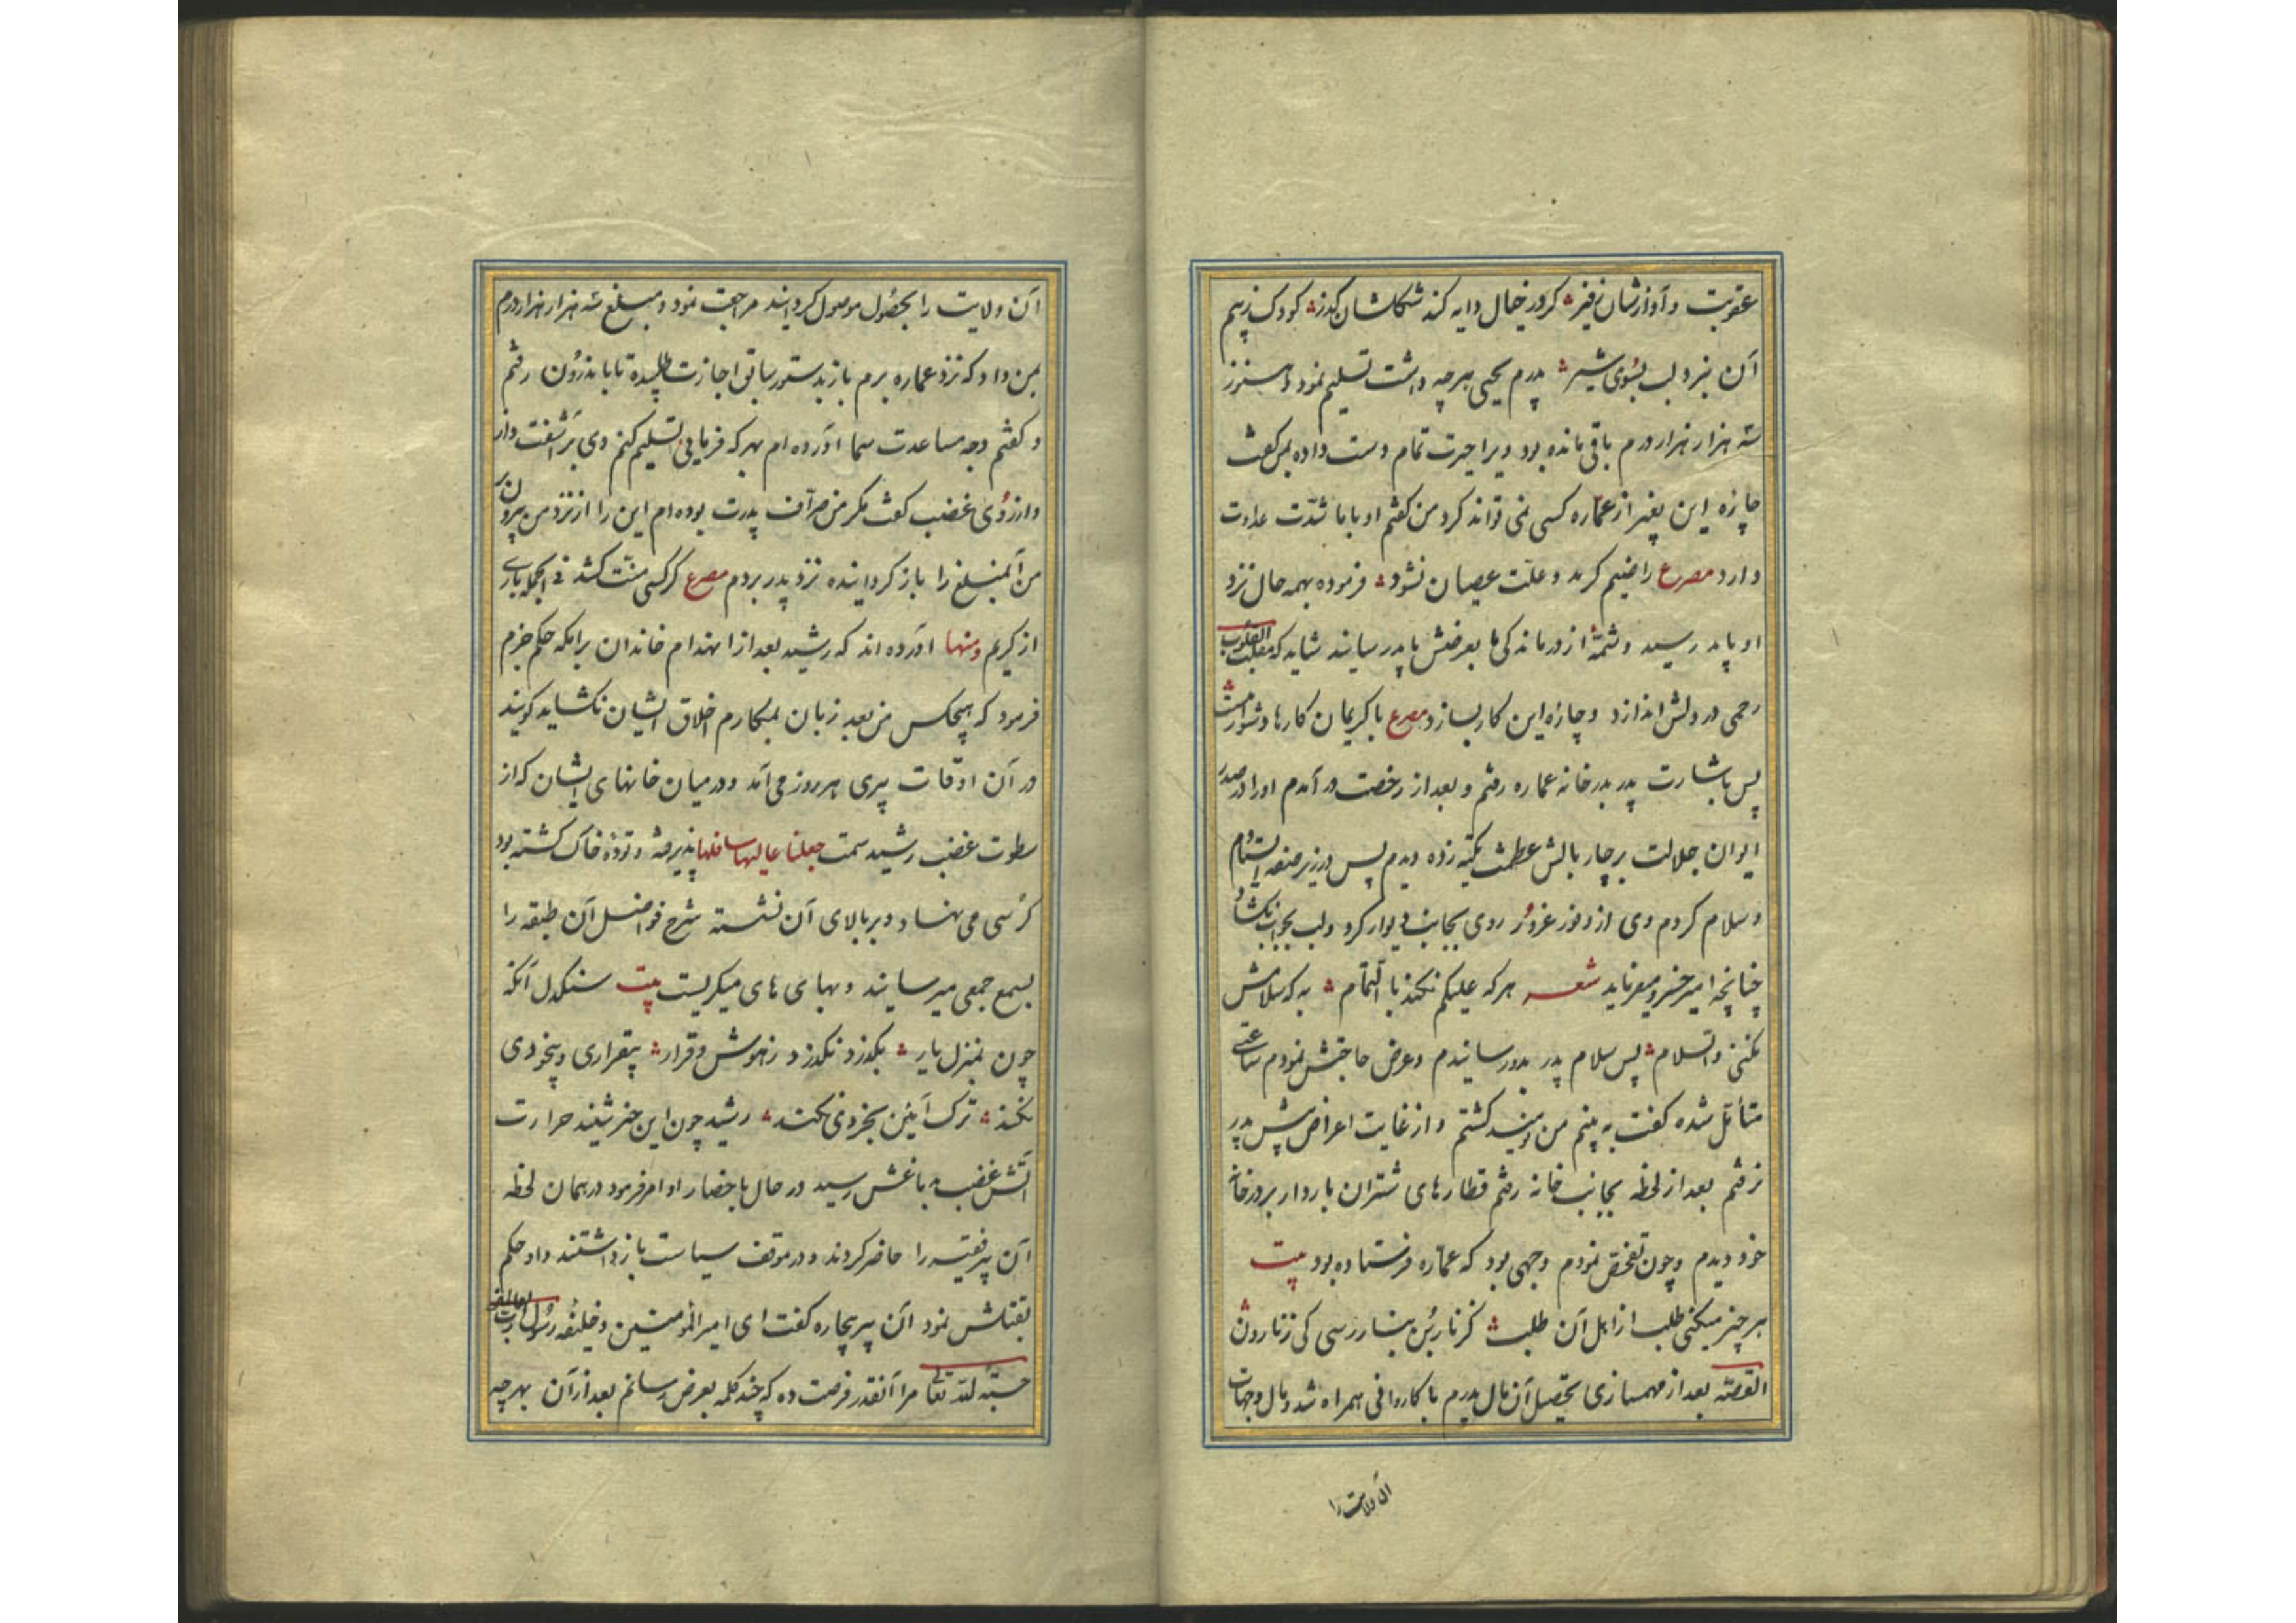 عقوبت و آوازشان زفیر کرور خیال دایه کند شکاشان گذر کودک زبیم
آن بنرد لب بسوی شیر پدرم یحیی هرچه داشت تسلیم نمود و هنوز
سه هزار هزار درم باقی مانده بود ویرا حیرت تمام دست داده بمن گفت
چارۀ این بغیر از عماره کسی نمی تواند کرد من گفتم او با ما شدّت عداوت
دارد مصرع راضیم گر بد و علّت عصیان نشود فرموده بهمه حال نزد
او باید رسید و شمّۀ از درماندکی ما بعرضش باید رسانید شاید که مقلب القلوب
رحمی در دلش اندازد و چارۀ این کار بسازد مصرع با کریمان کارها دشوار نیست
پس باشارت پدر بدر خانه عماره رفتم و بعد از رخصت در آمدم او را در صدر
ایوان جلالت بر چار بالش عظمت تکیه زده دیدم پس در زیر صفه ایستادم
و سلام کردم وی از وفور غرور روی بجانب دیوار کرد و لب بجواب نکشاد
چنانچه امیر خسرو میفرماید شعر هرکه علیکم نکند با التمام به که سلامش
نکنی والسلام پس سلام پدر بدو رسانیدم و عرض حاجتش نمودم ساعتی
متأمّل شده گفت به بینم من نومید گشتم و از غایت اعراض پیش پدر
نرفتم بعد از لحظه بجانب خانه رفتم قطارهای شتران باردار بر در خانه
خود دیدم و چون تفحّص نمودم وجهی بود که عماره فرستاده بود بیت
هر چیز میکنی طلب از اهل آن طلب گر نار بن بنار رسی کی ز نارون
القصّه بعد از مهمسازی تحصیل آن مال پدرم با کاروانی همراه شد و مال وجهات
آن ولایت را
آن ولایت را بحصول موصول گردانیده مراجعت نمود و مبلغ سه هزار هزار درم
بمن داد که نزد عماره برم باز بدستور سابق اجازت طلبیده تا باندرون رفتم
و گفتم وجه مساعدت سما آورده ام بهر که فرمایی تسلیم کنم وی بر آشفت و از
و از روی غضب گفت مگر من صرّاف پدرت بوده ام این را از نزد من بیرون بر
من آنمبلغ را باز گردانیده نزد پدر بردم مصرع گر کسی منّت کشد فی الجمله باری
از کریم ومنها آورده اند که رشید بعد از انهدام خاندان برامکه حکم جزم
فرمود که هیچکس من بعد زبان بمکارم اخلاق ایشان نکشاید گویند
در آن اوقات پیری هر روز می آمد و در میان خانهای ایشان که از
سطوت غضب رشید سمت جعلنا عالیها سافلها پذیرفته و تودۀ خاک گشته بود
کرسی می نهاد و بر بالای آن نشسته شرح فواضل آن طبقه را
بسمع جمعی میرسانید و بهای های میگریست بیت سنگدل آنکه
چون بمنزل یار بگذرد نگذرد ز هوش و قرار بیقراری و بیخودی
نکند ترک آیین بخردی نکند رشید چون این خبر شنید حرارت
آتش غضب بدماغش رسید در حال باحضار او امر فرمود در همان لحظه
آن پیر فقیر را حاضر کردند و در موقف سیاست باز داشتند و او حکم
بقتلش نمود آن پیر بیچاره گفت ای امیر المؤمنین و خلیفه رسول رب العالمین
حسبة لله تعالی مرا آنقدر فرصت ده که چند کلمه بعرض رسانم بعد از آن بهرچه